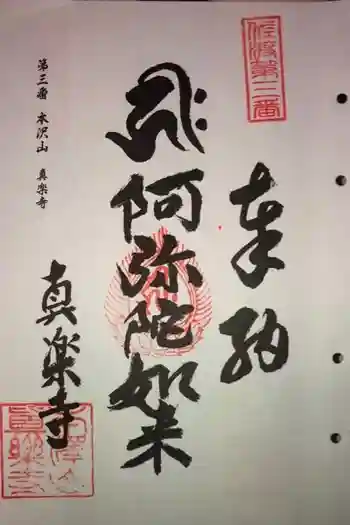 佐渡第三番
奉納
阿弥陀如来
第三番 本沢山 真楽寺
真楽寺